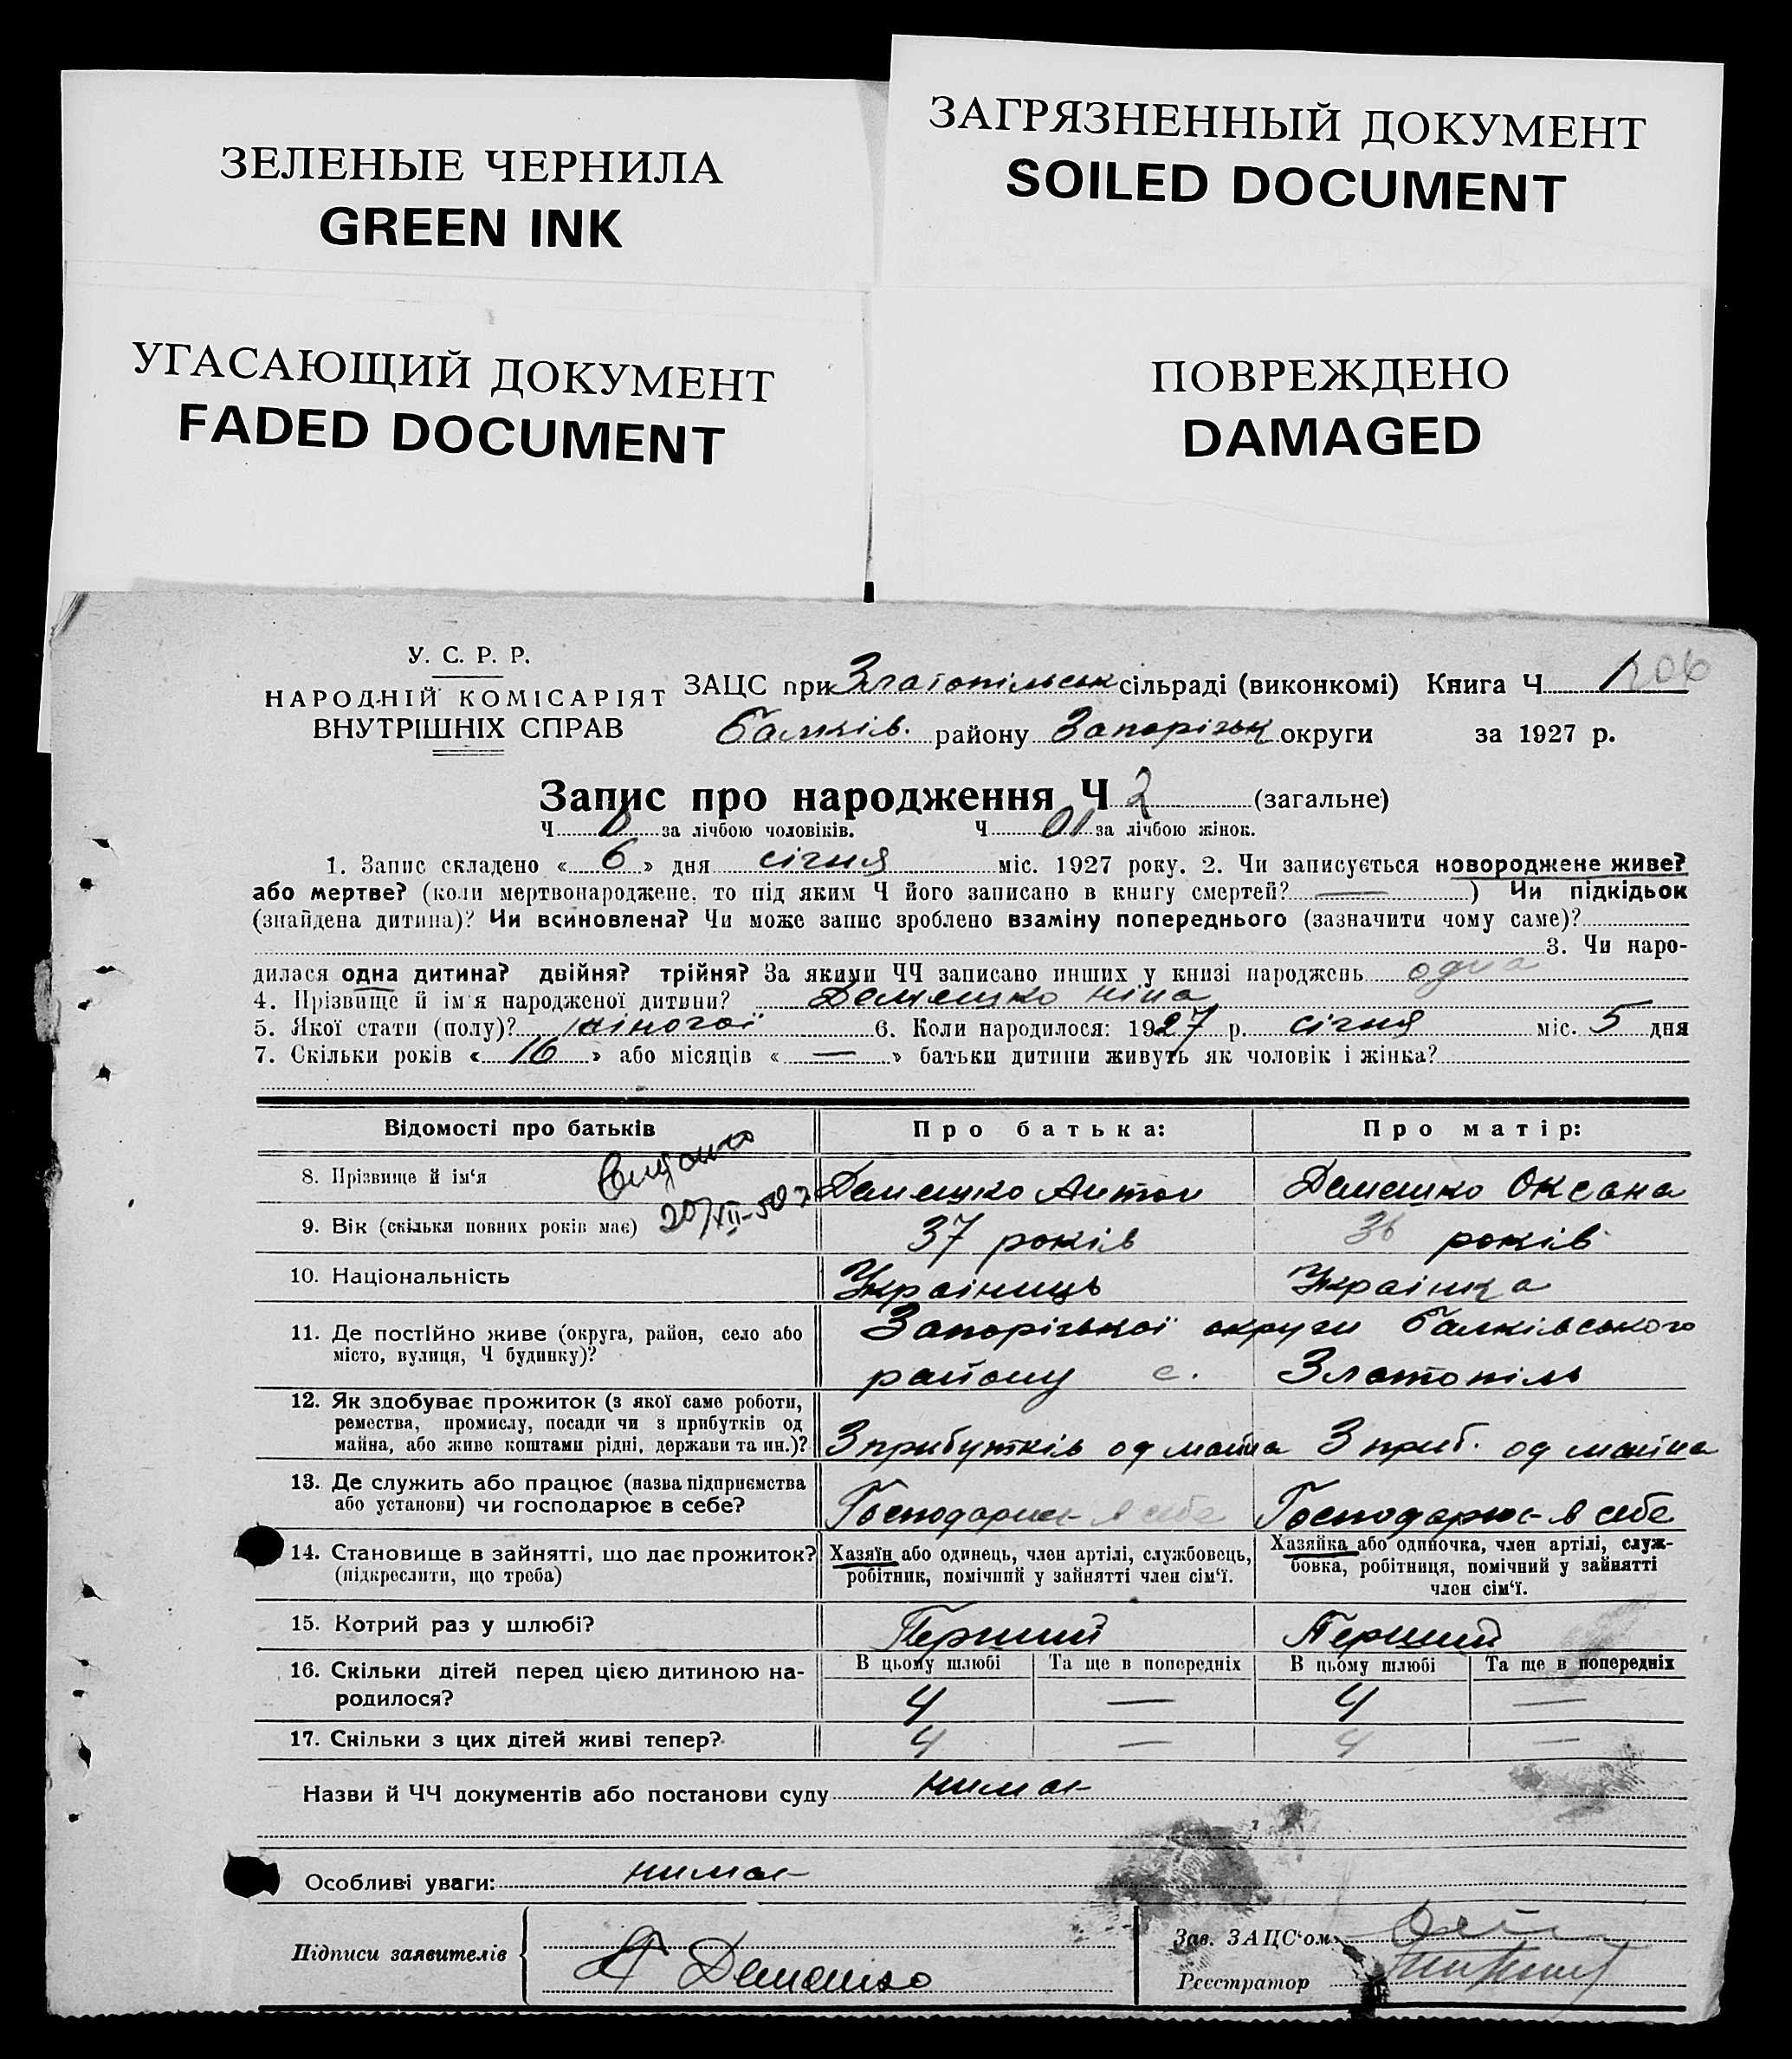 ЗЕЛЕНЫЕ ЧЕРНИЛА
GREEN INK
ЗАГРЯЗНЕННЫЙ ДОКУМЕНТ
SOILED DOCUMENT
УГАСАЮЩИЙ ДОКУМЕНТ
FADED DOCUMENT
ПОВРЕЖДЕНО
DAMAGED
У. С. Р. Р.
НАРОДНІЙ КОМІСАРІЯТ
ВНУТРІШНІХ СПРАВ
ЗАЦС при Златопільськ сільраді (виконкомі) Книга Ч 1 206
Балків. району Запорізьк округи за 1927 р.
Запис про народження Ч 2 (загальне)
Ч 0 за лічбою чоловіків. Ч 01 за лічбою жінок.
1. Запис складено « 6 » дня січня міс. 1927 року. 2. Чи записується новороджене живе?
або мертве? (коли мертвонароджене, то під яким Ч його записано в книгу смертей? — ) Чи підкідьок
(знайдена дитина)? Чи всиновлена? Чи може запис зроблено взаміну попереднього (зазначити чому саме)?
3. Чи наро-
дилася одна дитина? двійня? трійня? За якими ЧЧ записано инших у книзі народжень одна
4. Прізвище й ім'я народженої дитини? Демешко Ніна
5. Якої стати (полу)? жіночої 6. Коли народилося: 1927 р. січня міс. 5 дня
7. Скільки років « 16 » або місяців « — » батьки дитини живуть як чоловік і жінка?
Відомості про батьків Про батька: Про матір:
8. Прізвище й ім'я Демешко Антон Демешко Оксана
Видано
20/XII-50 г
9. Вік (скільки повних років має) 37 років 36 років
10. Національність Україниць Українка
11. Де постійно живе (округа, район, село або
місто, вулиця, Ч будинку)?
Запорізької округи Балківського
району с. Златопіль
12. Як здобуває прожиток (з якої саме роботи,
ремества, промислу, посади чи з прибутків од
майна, або живе коштами рідні, держави та ин.)?
З прибутків од майна З приб. од майна
13. Де служить або працює (назва підприємства
або установи) чи господарює в себе?
Господарює в себе Господарює в себе
14. Становище в зайнятті, що дає прожиток?
(підкреслити, що треба)
Хазяїн або одинець, член артілі, службовець,
робітник, помічний у зайнятті член сім'ї.
Хазяйка або одиночка, член артілі, служ-
бовка, робітниця, помічний у зайнятті
член сім'ї.
15. Котрий раз у шлюбі? Перший Перший
16. Скільки дітей перед цією дитиною на-
родилося?
В цьому шлюбі Та ще в попередніх В цьому шлюбі Та ще в попередніх
4 — 4 —
17. Скільки з цих дітей живі тепер? 4 — 4 —
Назви й ЧЧ документів або постанови суду нимає
Особливі уваги: нимає
Підписи заявителів
А Демешко
Зав. ЗАЦС'ом
Реєстратор